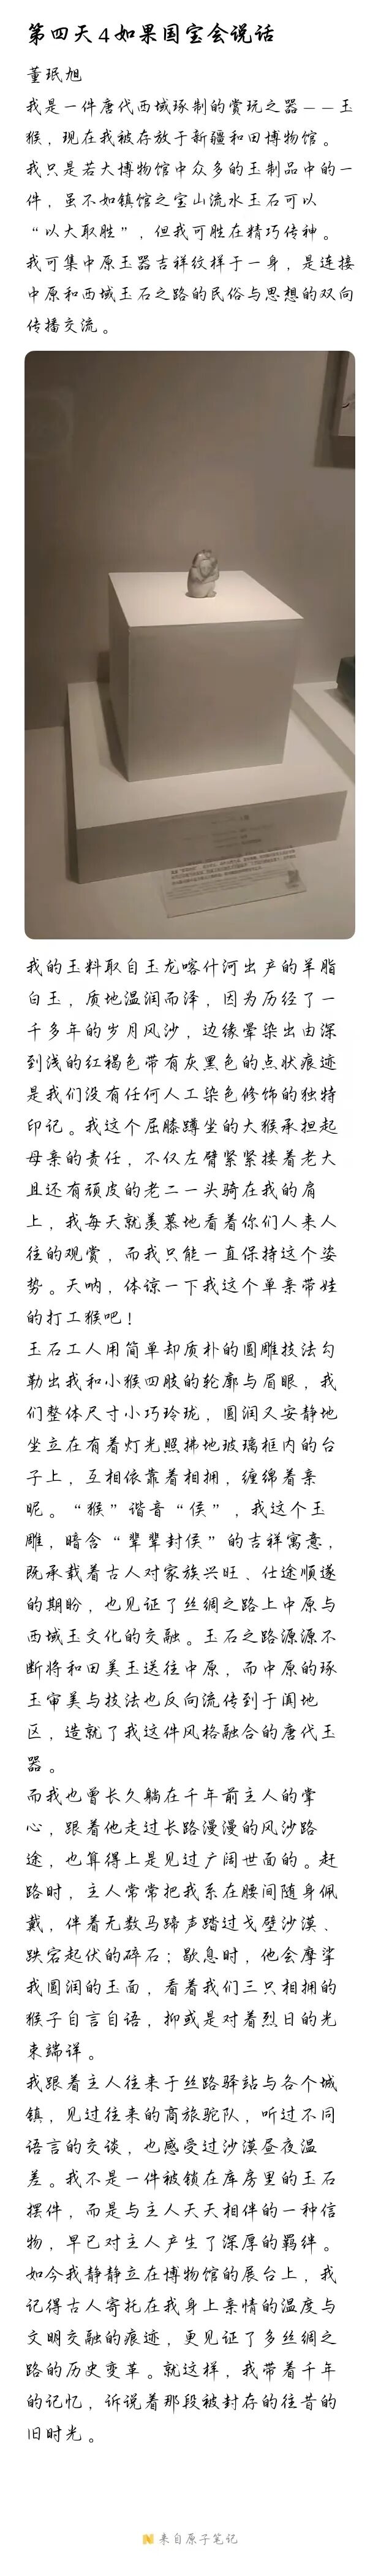 第四天4如果国宝会说话
董珉旭
我是一件唐代西域琢制的赏玩之器——玉
猴，现在我被存放于新疆和田博物馆。
我只是若大博物馆中众多的玉制品中的一
件，虽不如镇馆之宝山流水玉石可以
“以大取胜”，但我可胜在精巧传神。
我可集中原玉器吉祥纹样于一身，是连接
中原和西域玉石之路的民俗与思想的双向
传播交流。
我的玉料取自玉龙喀什河出产的羊脂
白玉，质地温润而泽，因为历经了一
千多年的岁月风沙，边缘晕染出由深
到浅的红褐色带有灰黑色的点状痕迹
是我们没有任何人工染色修饰的独特
印记。我这个屈膝蹲坐的大猴承担起
母亲的责任，不仅左臂紧紧搂着老大
且还有顽皮的老二一头骑在我的肩
上，我每天就羡慕地看着你们人来人
往的观赏，而我只能一直保持这个姿
势。天呐，体谅一下我这个单亲带娃
的打工猴吧！
玉石工人用简单却质朴的圆雕技法勾
勒出我和小猴四肢的轮廓与眉眼，我
们整体尺寸小巧玲珑，圆润又安静地
坐立在有着灯光照拂地玻璃框内的台
子上，互相依靠着相拥，缠绵着亲
昵。“猴”谐音“侯”，我这个玉
雕，暗含“辈辈封侯”的吉祥寓意，
既承载着古人对家族兴旺、仕途顺遂
的期盼，也见证了丝绸之路上中原与
西域玉文化的交融。玉石之路源源不
断将和田美玉送往中原，而中原的琢
玉审美与技法也反向流传到于阗地
区，造就了我这件风格融合的唐代玉
器。
而我也曾长久躺在千年前主人的掌
心，跟着他走过长路漫漫的风沙路
途，也算得上是见过广阔世面的。赶
路时，主人常常把我系在腰间随身佩
戴，伴着无数马蹄声踏过戈壁沙漠、
跌宕起伏的碎石；歇息时，他会摩挲
我圆润的玉面，看着我们三只相拥的
猴子自言自语，抑或是对着烈日的光
束端详。
我跟着主人往来于丝路驿站与各个城
镇，见过往来的商旅驼队，听过不同
语言的交谈，也感受过沙漠昼夜温
差。我不是一件被锁在库房里的玉石
摆件，而是与主人天天相伴的一种信
物，早已对主人产生了深厚的羁绊。
如今我静静立在博物馆的展台上，我
记得古人寄托在我身上亲情的温度与
文明交融的痕迹，更见证了多丝绸之
路的历史变革。就这样，我带着千年
的记忆，诉说着那段被封存的往昔的
旧时光。
来自原子笔记